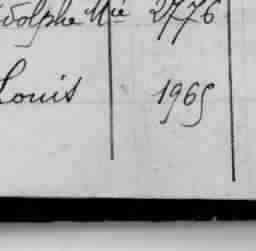 dolphe Mie 2776
Louis 1965